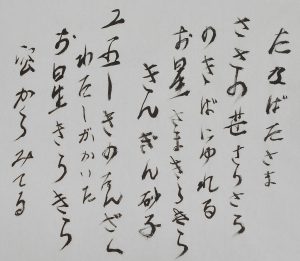 たなばたさま
ささの葉さらさら
のきばにゆれる
お星さまきらきら
きんぎん砂子
二 五しきのたんざく
わたしがかいた
お星きらきら
空からみてる